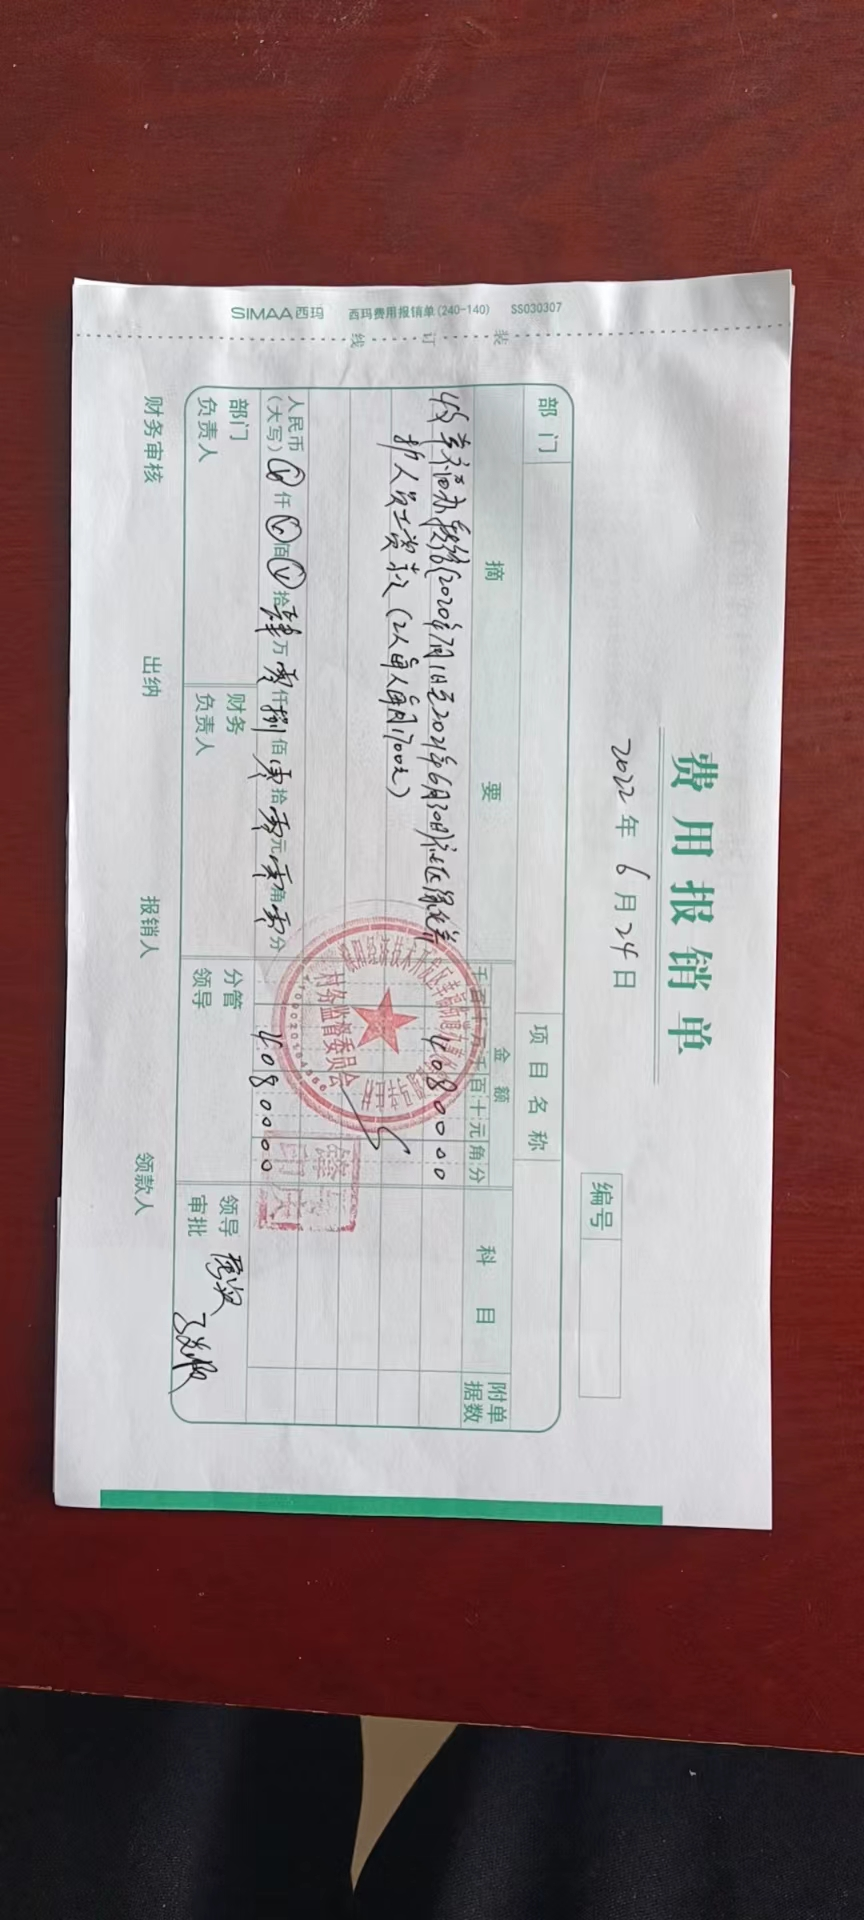 SIMAA西玛 西玛费用报销单(240-140) SS030307
装 订 线
费用报销单
2022年6月24日
编号
部门
项目名称
摘要
金额
科目
附单据数
千百十万千百十元角分
收 办 (2020年7月1日至2021年6月30日)社区绿化养
4080000
护人员工资款(2人每人每月1700元)
人民币(大写) 仟 佰 拾肆万零仟捌佰零拾零元零角零分
4080000
村务监督委员会
部门负责人
财务负责人
分管领导
领导审批
财务审核
出纳
报销人
领款人